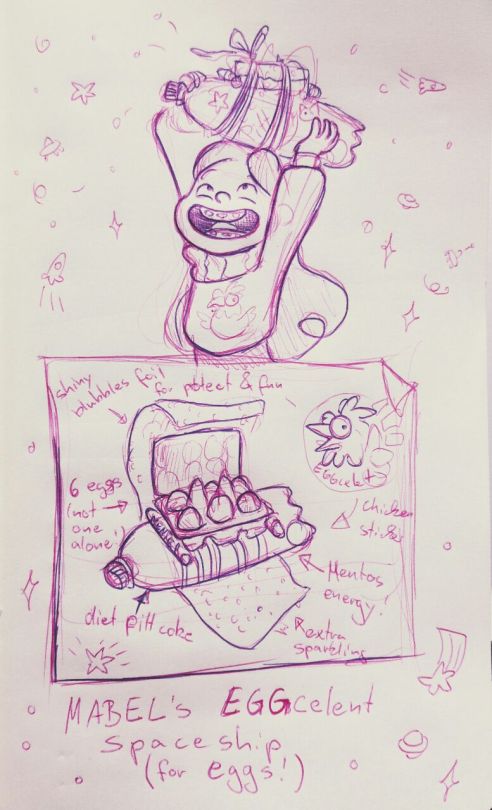 shiny
blubbles foil
for potect & fun
EGGcelent
6 eggs
(not
one
alone!)
chicken
sticker
Mentos
energy!
diet pitt coke
extra
sparkling
MABEL'S EGGcelent
spaceship
(for eggs!)